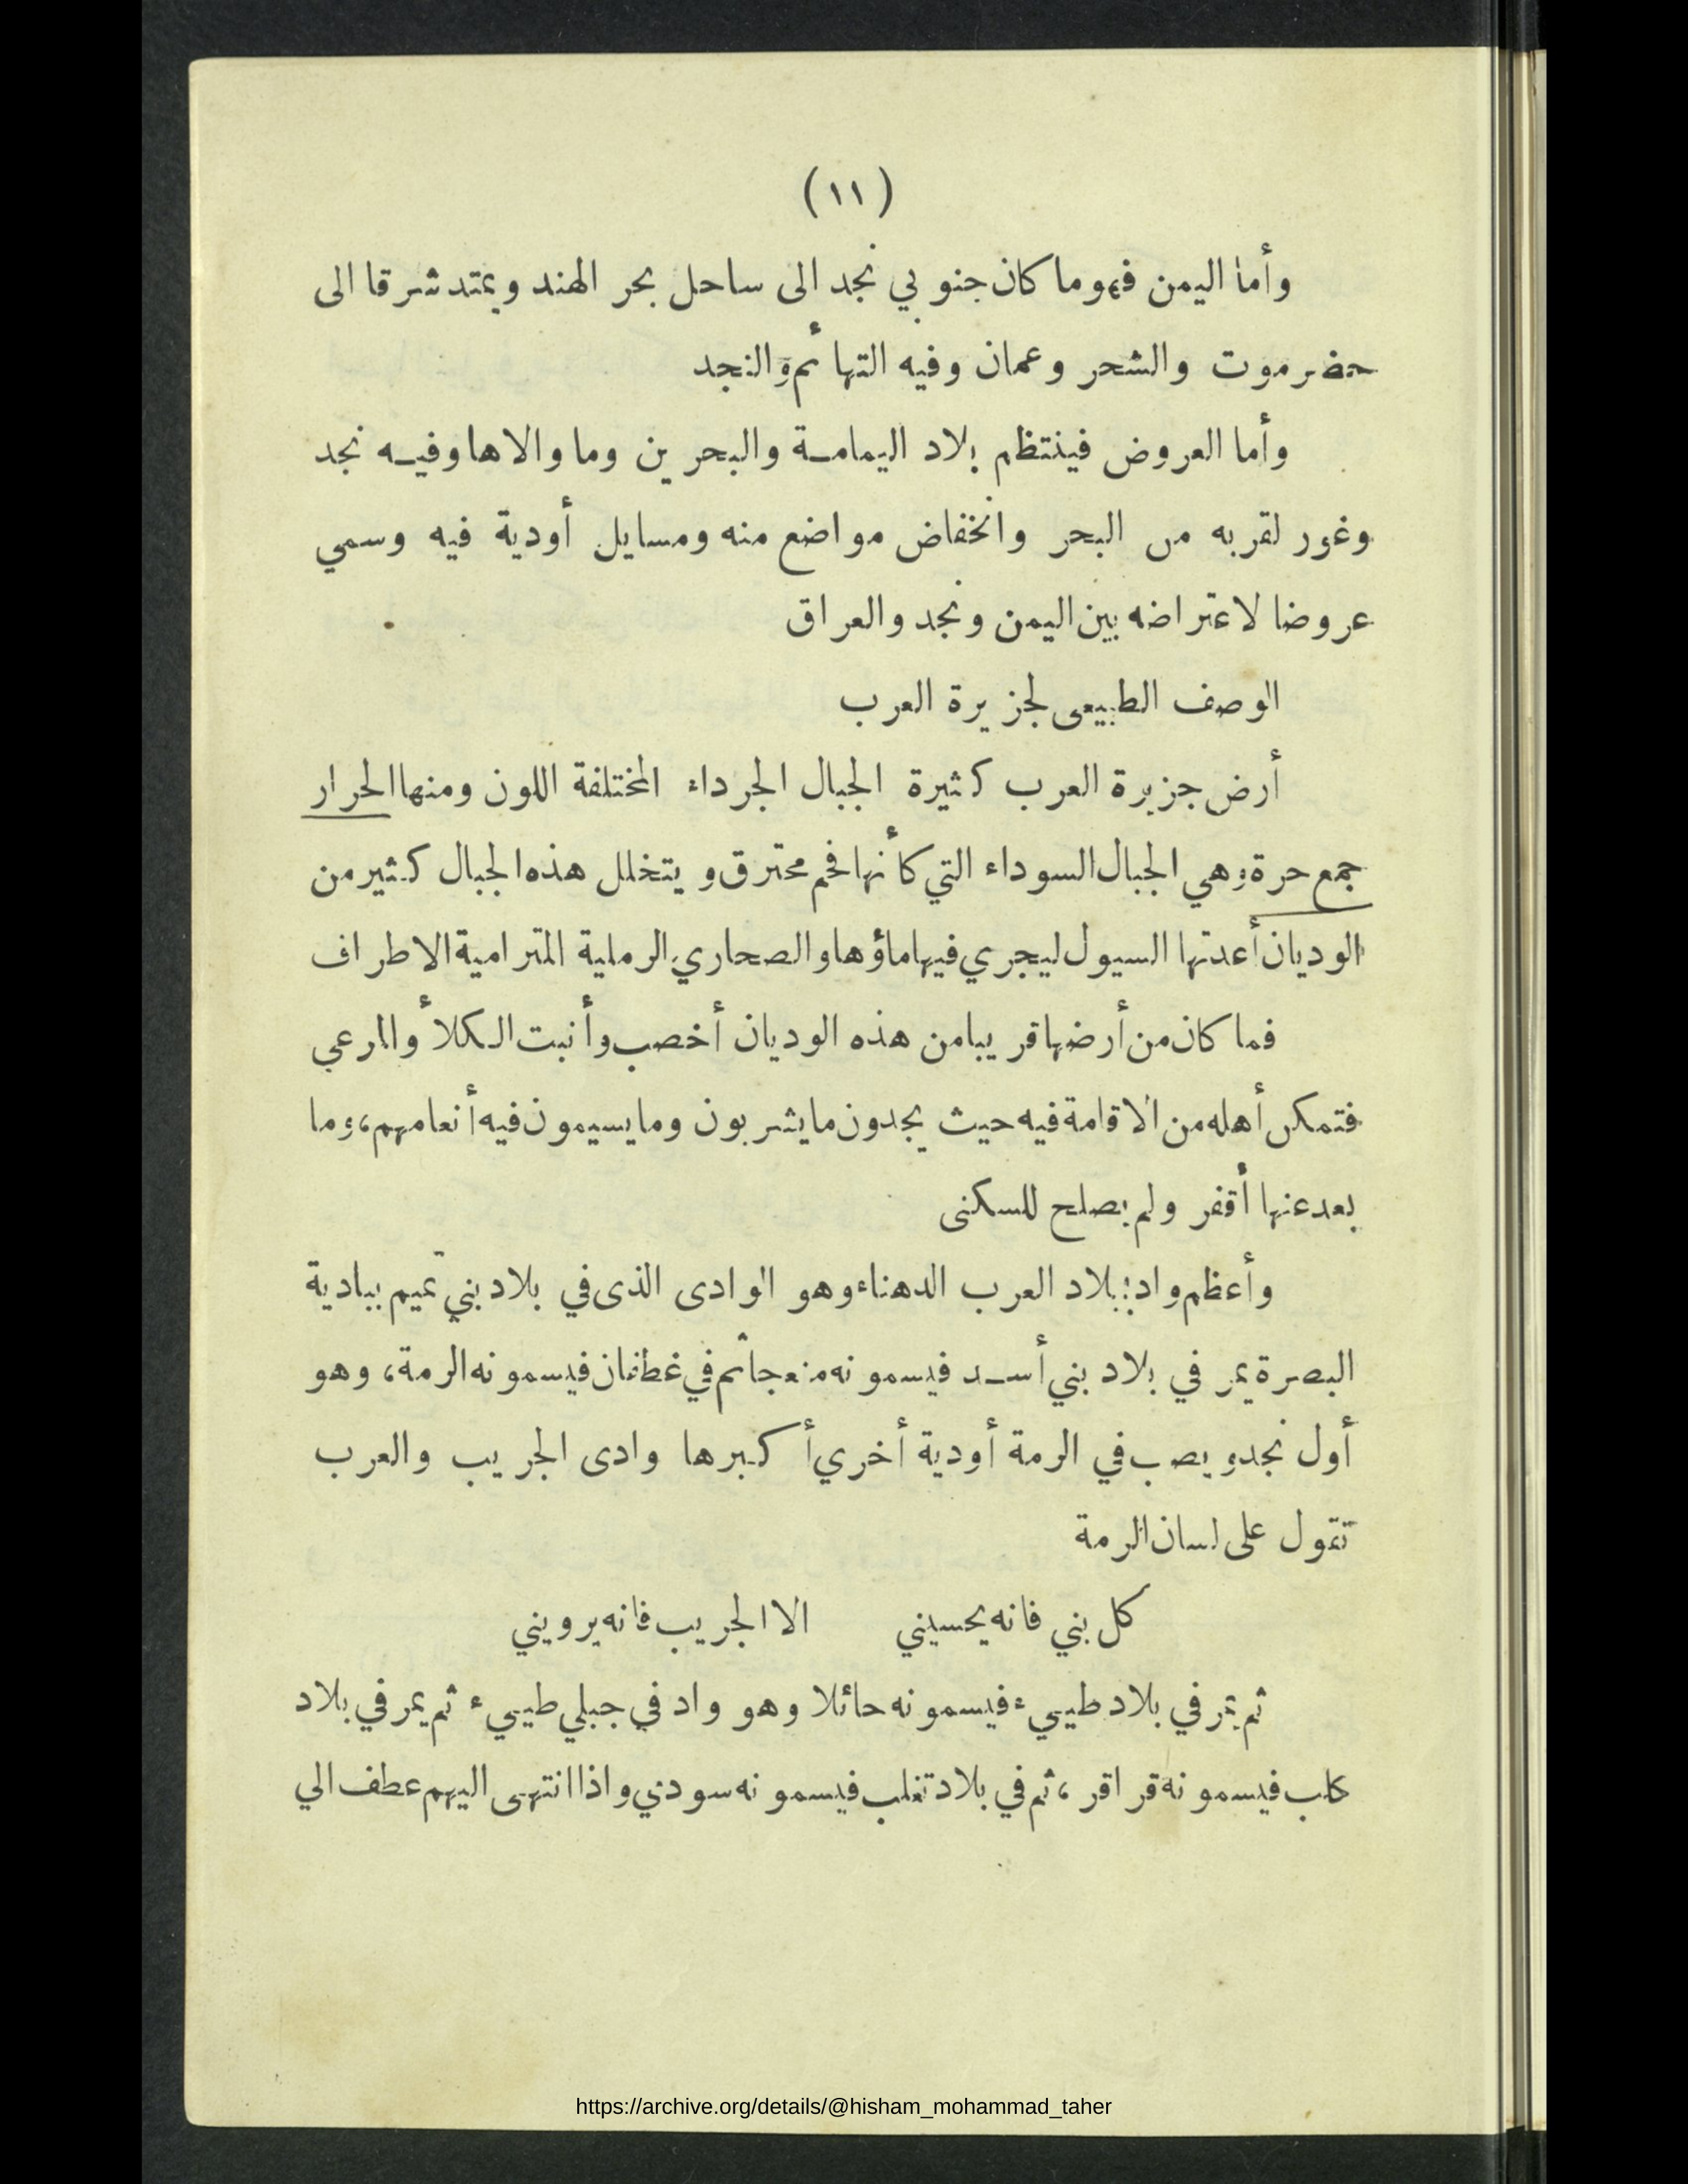 (١١)
وأما اليمن فهوما كان جنوبي نجد الى ساحل بحر الهند ويمتد شرقا الى
حضرموت والشحر وعمان وفيه التهائم والنجد
وأما العروض فينتظم بلاد اليمامة والبحرين وما والاها وفيه نجد
وغور لقربه من البحر وانخفاض مواضع منه ومسايل أودية فيه وسمي
عروضا لاعتراضه بين اليمن ونجد والعراق
الوصف الطبيعى لجزيرة العرب
أرض جزيرة العرب كثيرة الجبال الجرداء المختلفة اللون ومنها الحرار
جمع حرة وهي الجبال السوداء التي كأنها فحم محترق ويتخلل هذه الجبال كثير من
الوديان أعدتها السيول ليجري فيها ماؤها والصحاري الرملية المترامية الاطراف
فما كان من أرضها قريبا من هذه الوديان أخصب وأنبت الكلأ والمرعي
فتمكن أهله من الاقامة فيه حيث يجدون ما يشربون وما يسيمون فيه أنعامهم، وما
بعد عنها أقفر ولم يصلح للسكنى
وأعظم واد ببلاد العرب الدهناء وهو الوادى الذى في بلاد بني تميم ببادية
البصرة يمر في بلاد بني أسد فيسمونه منعجا ثم في غطفان فيسمونه الرمة، وهو
أول نجد ويصب في الرمة أودية أخري أكبرها وادى الجريب والعرب
تقول على لسان الرمة
كل بني فانه يحسيني الا الجريب فانه يرويني
ثم يمر في بلاد طييء فيسمونه حائلا وهو واد في جبلي طييء ثم يمر في بلاد
كلب فيسمونه قراقر، ثم في بلاد تغلب فيسمونه سودي واذا انتهى اليهم عطف الي
https://archive.org/details/@hisham_mohammad_taher